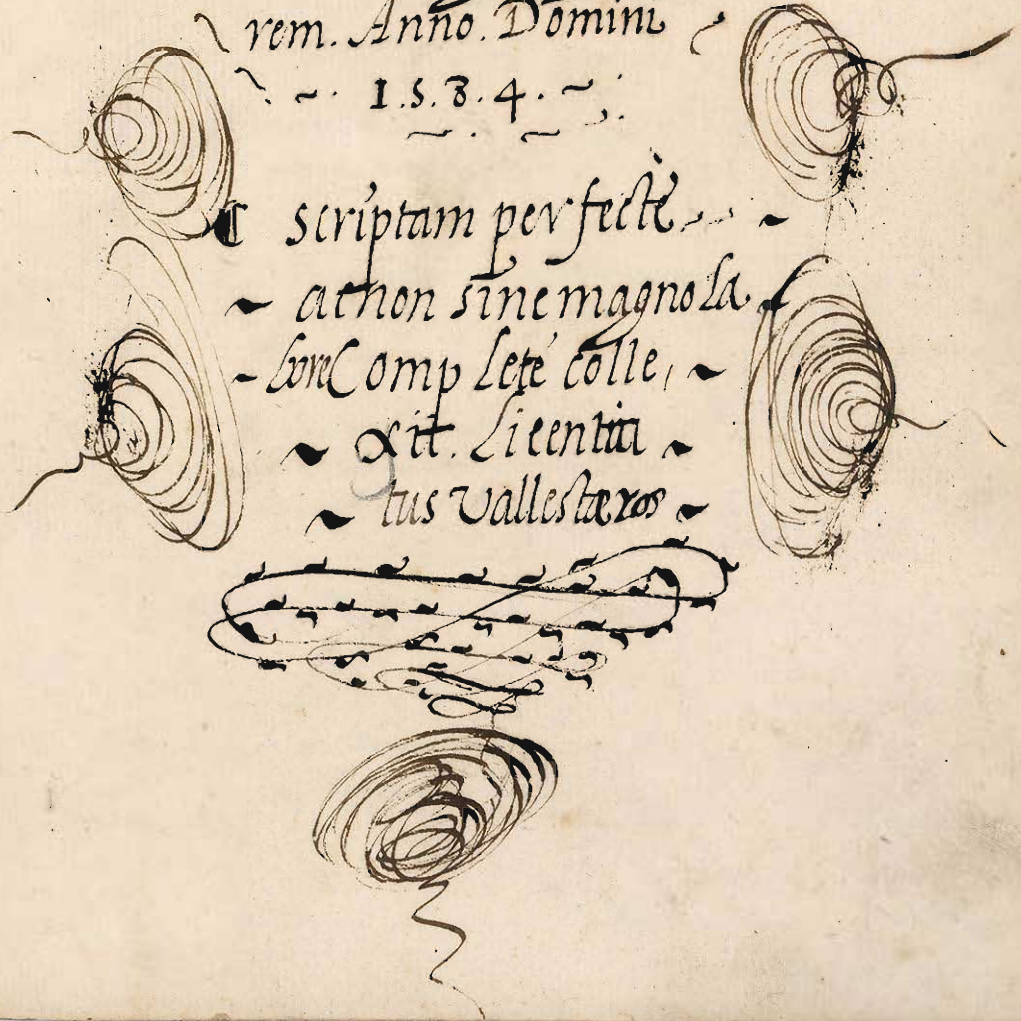 rem. Anno. Domini
1.5.8.4.
Scriptam perfectè
ac non sine magno la
bore Complete colle,
xit. Licentia
tus Vallestæros